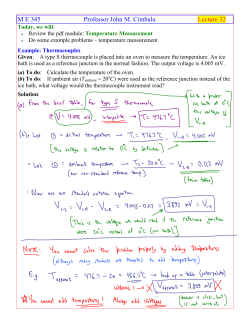 M E 345 Professor John M. Cimbala Lecture 32
Today, we will:
• Review the pdf module: Temperature Measurement
• Do some example problems – temperature measurement
Example: Thermocouples
Given: A type S thermocouple is placed into an oven to measure the temperature. An ice bath is used as a reference junction in the normal fashion. The output voltage is 4.005 mV.
(a) To do: Calculate the temperature of the oven.
(b) To do: If ambient air (Tambient = 20°C) were used as the reference junction instead of the ice bath, what voltage would the thermocouple instrument read?
Solution:
(a) From the brief table, for type S thermocouple
@ V = 4.005 mV interpolate → T = 476.7°C
(b) • Let ① = actual temperature → T1 = 476.7°C
V1-R = 4.005 mV
(this voltage is relative to 0°C by definition)
• Let ② = ambient temperature → T2 = 20.0°C → V2-R = 0.113 mV
(our non-standard reference temp)
(from table)
• Now use our standard notation equation:
= 4.005 - 0.113 = 3.892 mV =
[This is the voltage we would read if the reference junction were 20°C instead of 0°C (ice bath).]
NOTE: You cannot solve this problem properly by adding temperatures
(although many students are tempted to add temperatures)
E.g. = 476.7 - 20 = 456.7°C → look up in table (interpolate)
WRONG!
You cannot add temperatures! Always add voltages